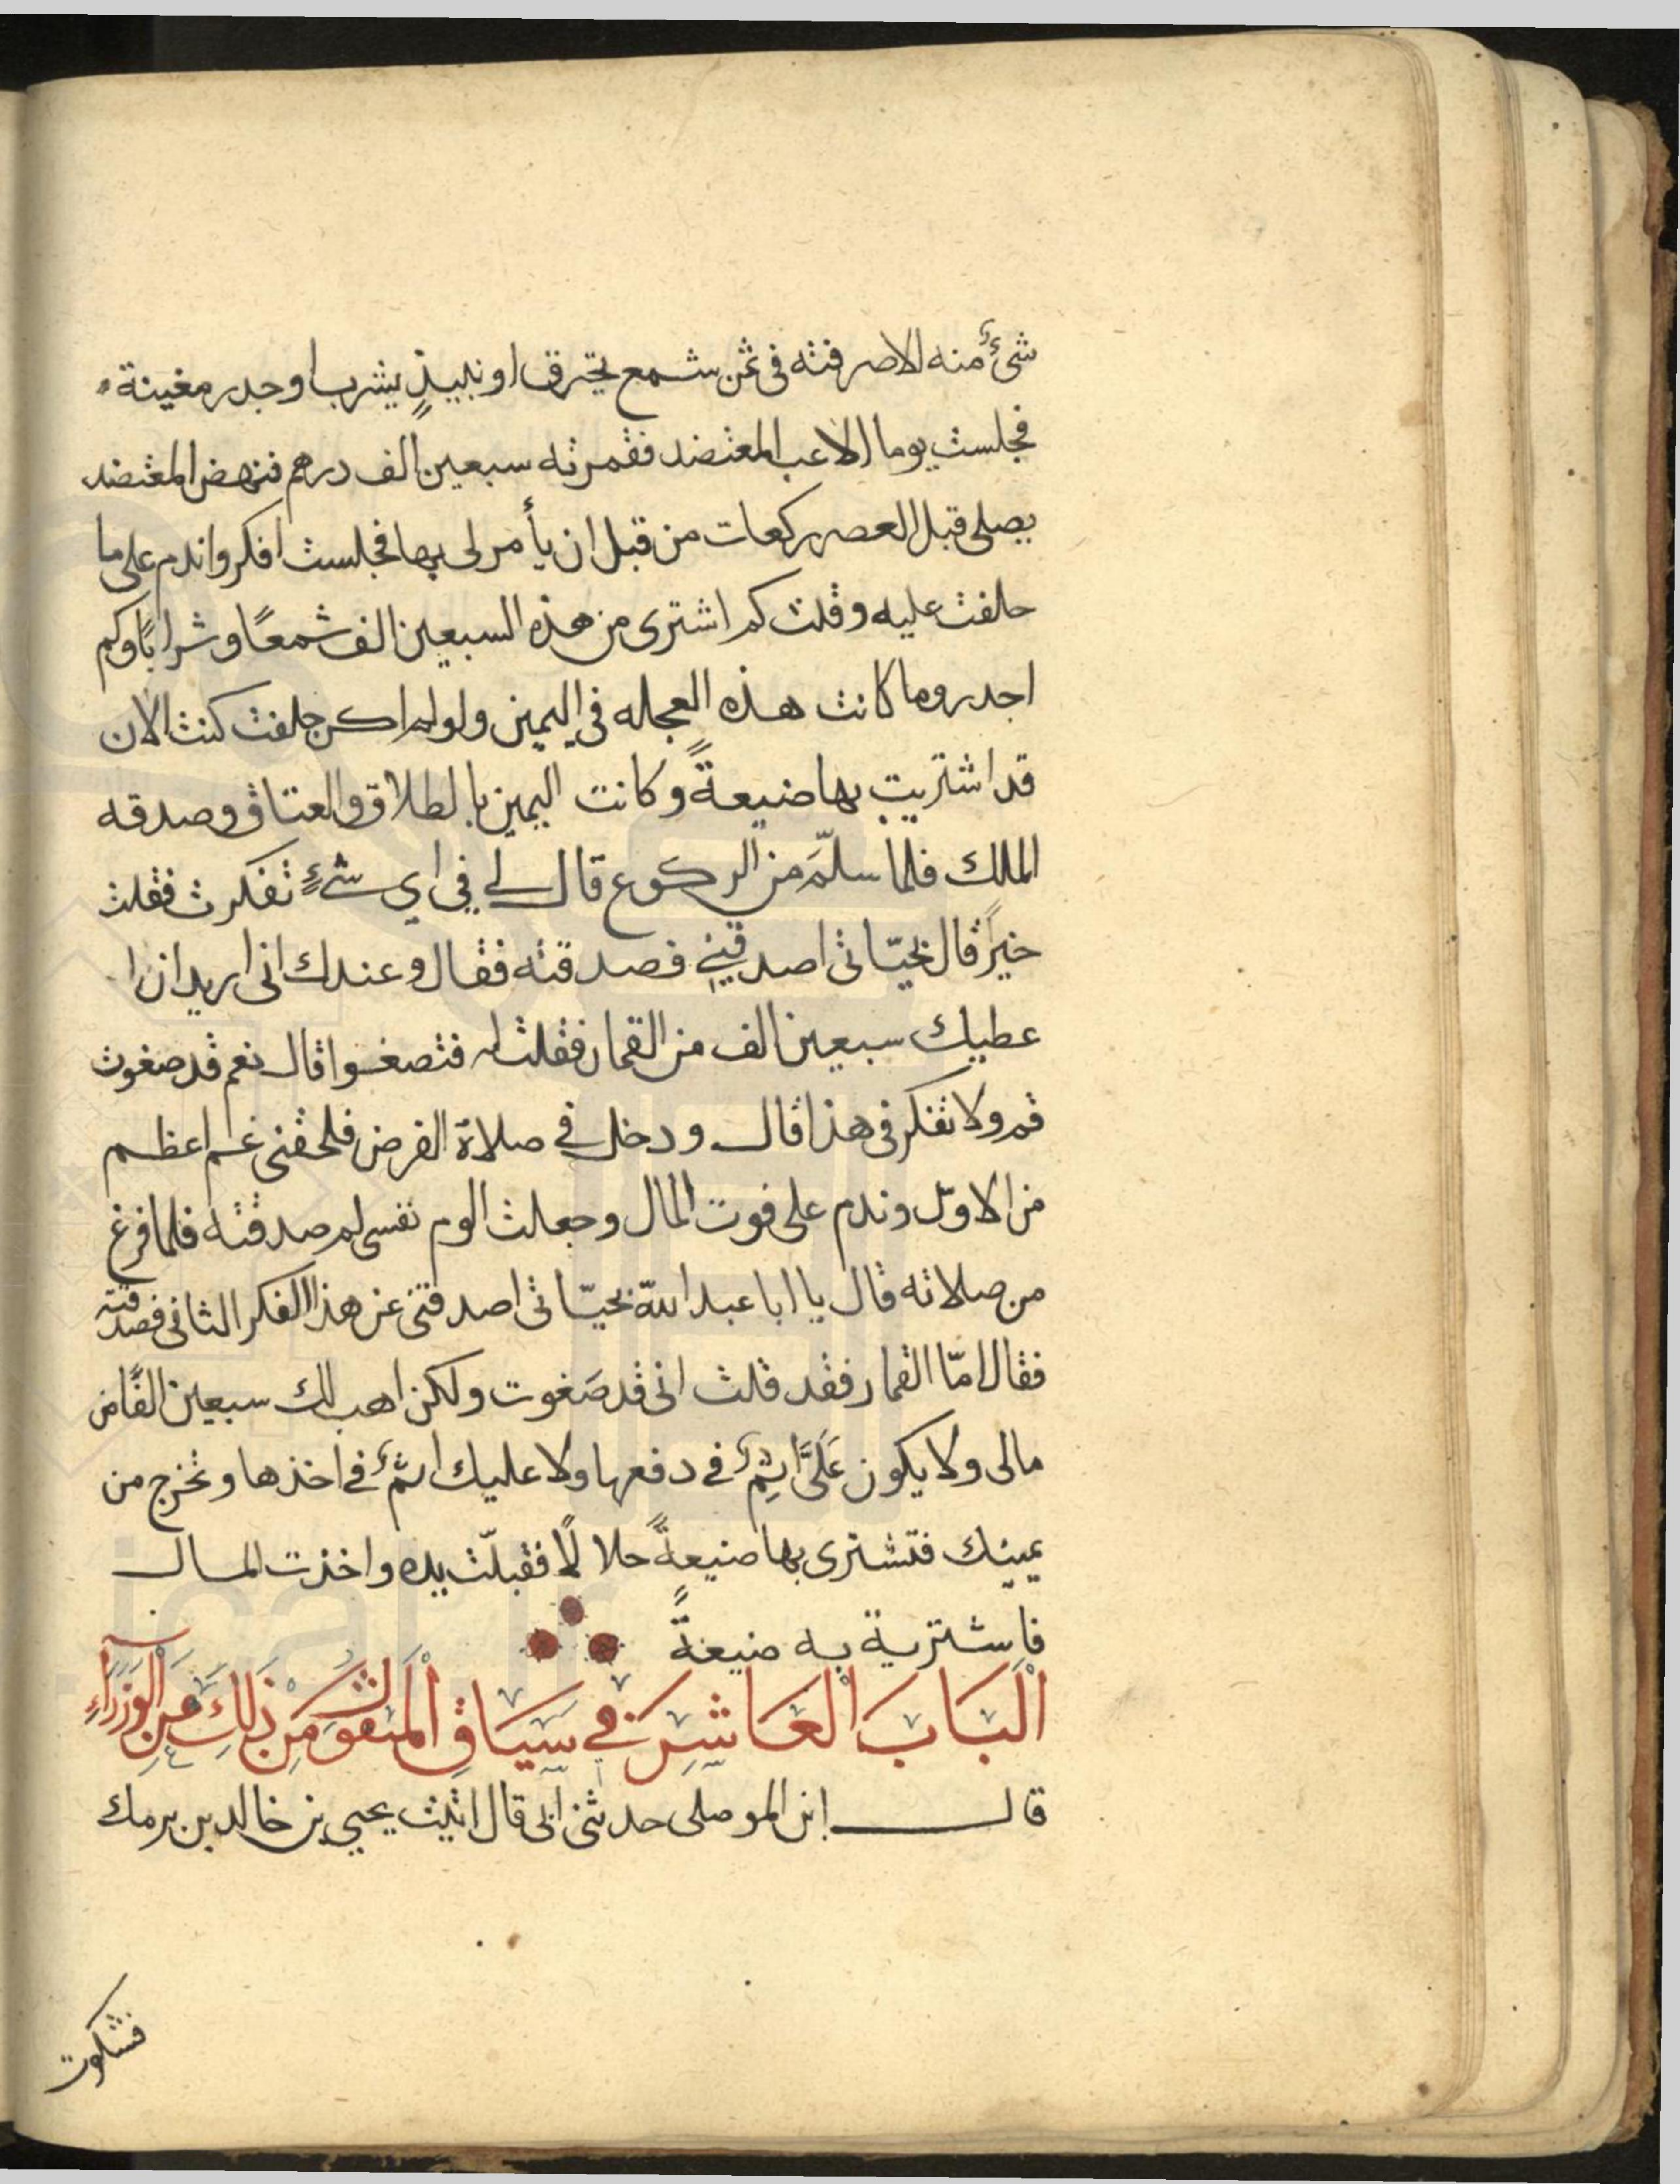 شئٌ منه الا صرفته فى ثمن شمع يحترق او نبيذٍ يشرب او جدر مغينة
فجلست يوما الاعب المعتضد فقمرته سبعين الف درهم فنهض المعتضد
يصلى قبل العصر ركعات من قبل ان يأمر لى بها فجلست افكر واندم على ما
حلفت عليه وقلت كم اشترى من هذه السبعين الف شمعًا وشرابًا وكم
اجدر وما كانت هذه العجله فى اليمين ولو لم اكن حلفت كنت الان
قد اشتريت بها ضيعةً وكانت اليمين بالطلاق والعتاق وصدقه
الملك فلما سلّمَ من الركوع قال لى فى اى شىءٍ تفكرت فقلت
خيرًا قال بحيّاتى اصدقينى فصدقته فقال وعندك انى اريد ان ا
عطيك سبعين الف من القمار فقلت له فتصغوا قال نعم قد صغوت
قم ولا تفكر فى هذا قال ودخل فى صلاة الفرض فلحقنى غم اعظم
من الاوّل وندم على فوت المال وجعلت الوم نفسى لم صدقته فلما فرغ
من صلاته قال يا ابا عبد الله بحيّاتى اصدقتى عن هذا الفكر الثانى فصدقته
فقال امّا القمار فقد قلت انى قد صَغوت ولكن اهب لك سبعين الفًا من
مالى ولا يكون عَلَىَّ اثِمٌ فى دفعها ولا عليك اثمٌ فى اخذها وتخرج من
يمينك فتشترى بها ضيعةً حلالًا فقبلّت يده واخذت المال
فاشترية به ضيعةً
الْبَابَ الْعَاشِرَ فى سِيَاقِ الْمَنقوَلِ مِن ذَلِكَ عَنِ الْوُزَرَاءِ
قال ابن الموصلى حدثنى ابى قال اتيت يحيى بن خالد بن برمك
فشكوت